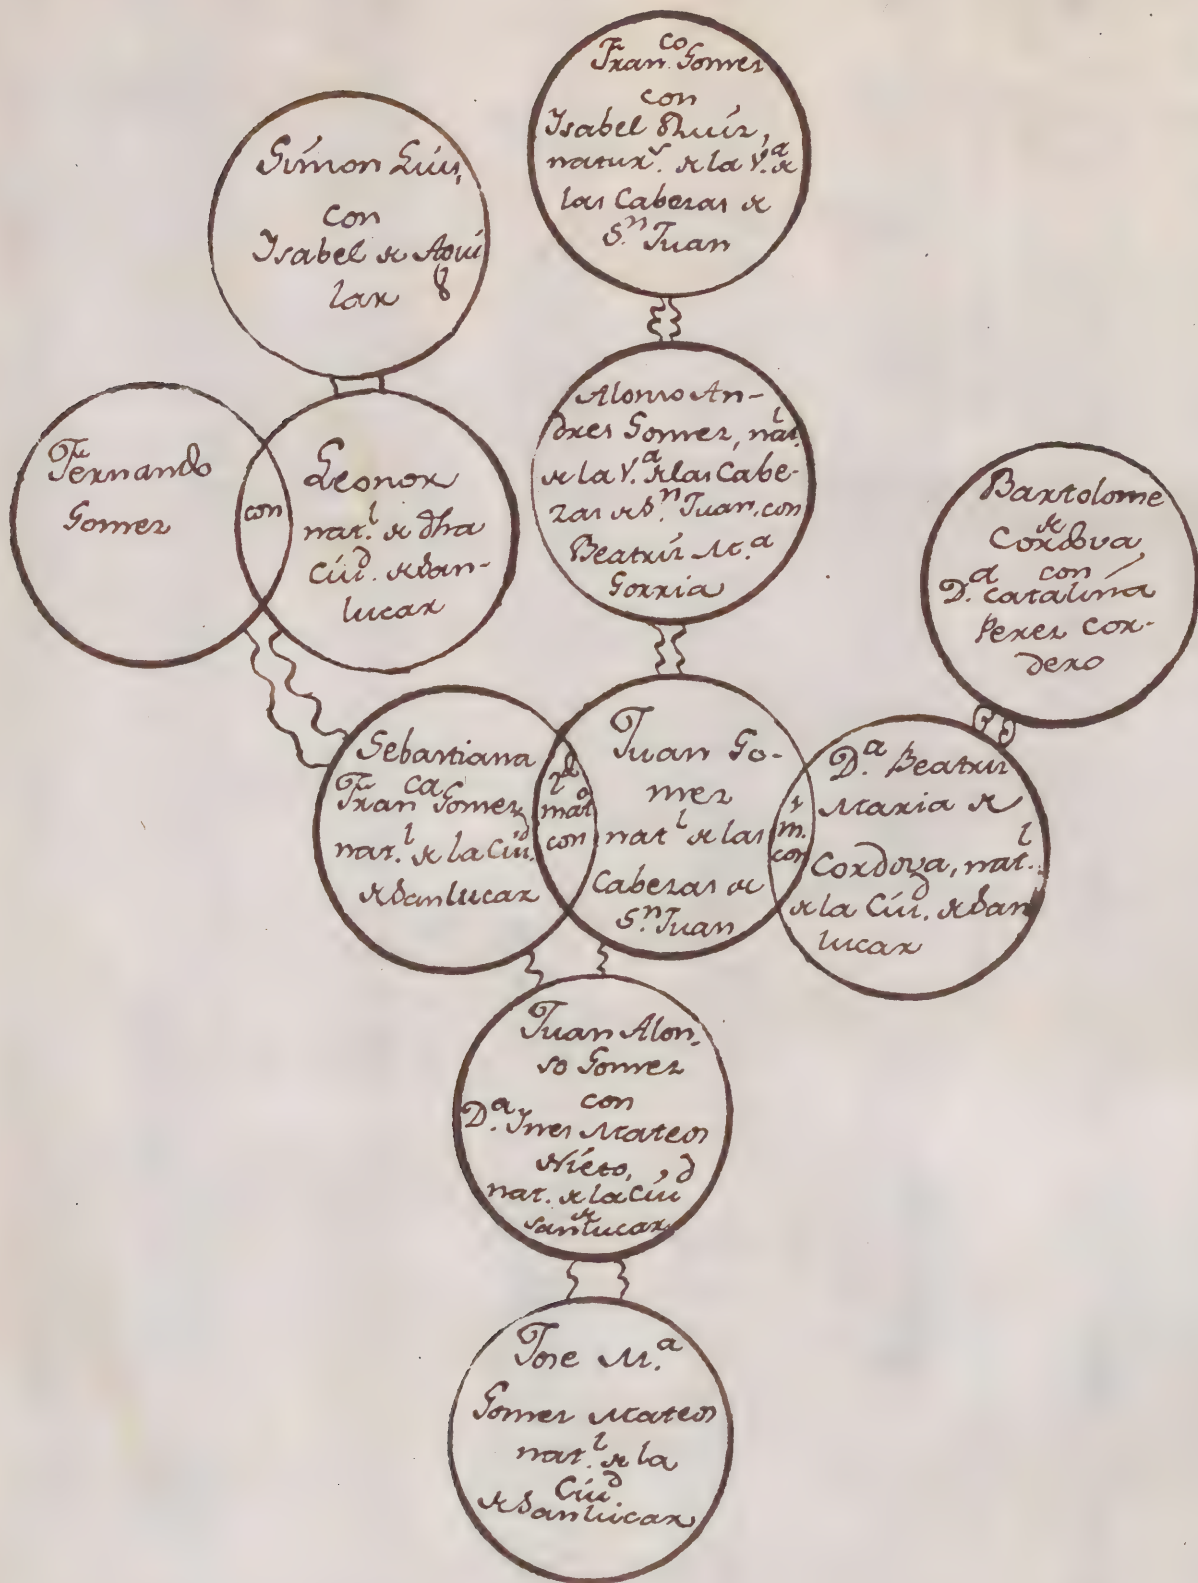 Fran.co Gomez
con
Isabel Ruiz,
natur.s de la V.a de
las Cabezas de
S.n Juan
Simon Luis,
con
Isabel de Agui
lar
Alonso An-
dres Gomez, nat.l
de la V.a de las Cabe-
zas de S.n Juan, con
Beatriz M.a
Gorria
Fernando
Gomez
con
Leonor
nat.l de dha
Ciu.d de San-
lucar
Bartolome
de
Cordova,
con
D.a Catalina
Perez Cor-
dero
Sebastiana
Fran.ca Gomez,
nat.l de la Ciu.d
de Sanlucar
2.d
mat.o
con
Juan Go-
mez
nat.l de las
Cabezas de
S.n Juan
1
m.
con
D.a Beatriz
Maria de
Cordova, nat.l
de la Ciu.d de San
lucar
Juan Alon-
so Gomez
con
D.a Ines Mateos
Nieto,
nat. de la Ciu.d
de
Sanlucar
Jose M.a
Gomez Mateos
nat.l de la
Ciu.d
de Sanlucar